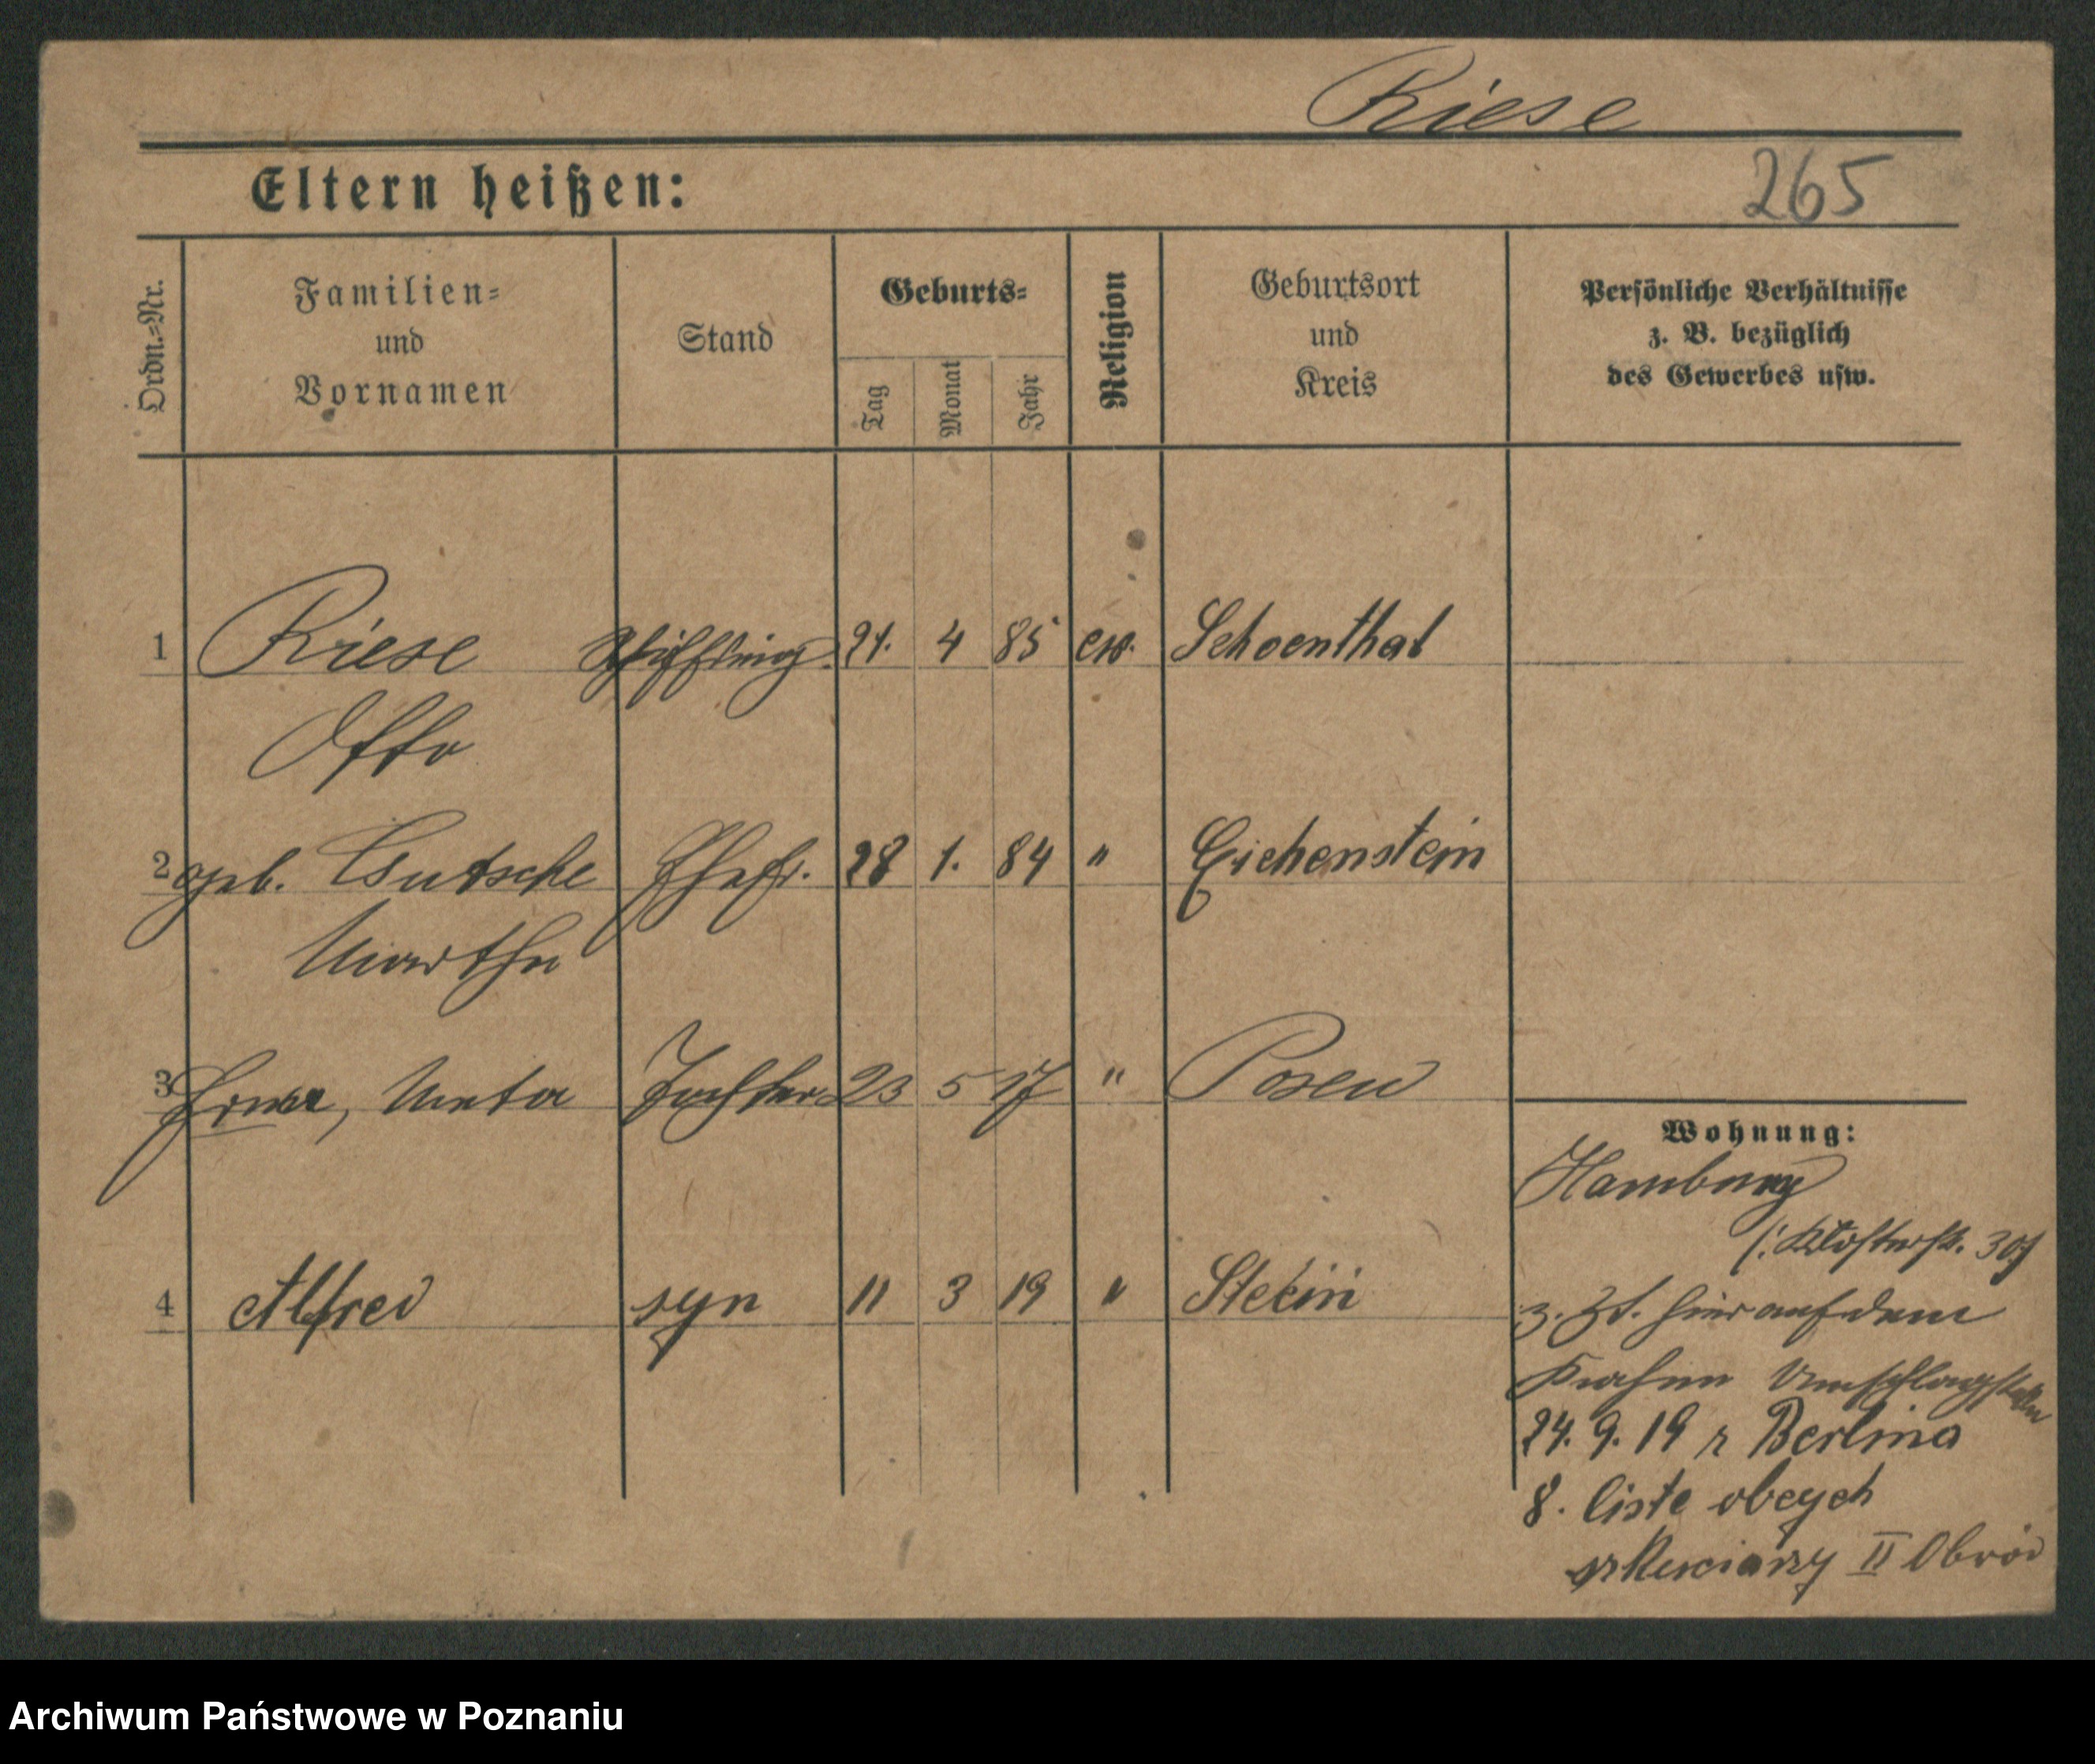 Riese
265
Eltern heißen:
Ordn.=Nr.
Familien=
und
Vornamen
Stand
Geburts=
Tag
Monat
Jahr
Religion
Geburtsort
und
Kreis
Persönliche Verhältnisse
z. B. bezüglich
des Gewerbes usw.
1 Riese 21. 4 85 ew. Schoenthal
Otto
2 geb. Gutsche Ehefr. 28 1. 84 " Eichenstein
Martha
3 Erna, Meta Tochter 23 5 17 " Posen
4 Alfred syn 11 3 19 " Stetin
Wohnung:
Hamburg
Klosterstr. 30
z. Zt. hier auf dem
Kahn Umschlagstelle
24. 9. 19 z Berlina
8. liste obcych
II Obwód
Archiwum Państwowe w Poznaniu